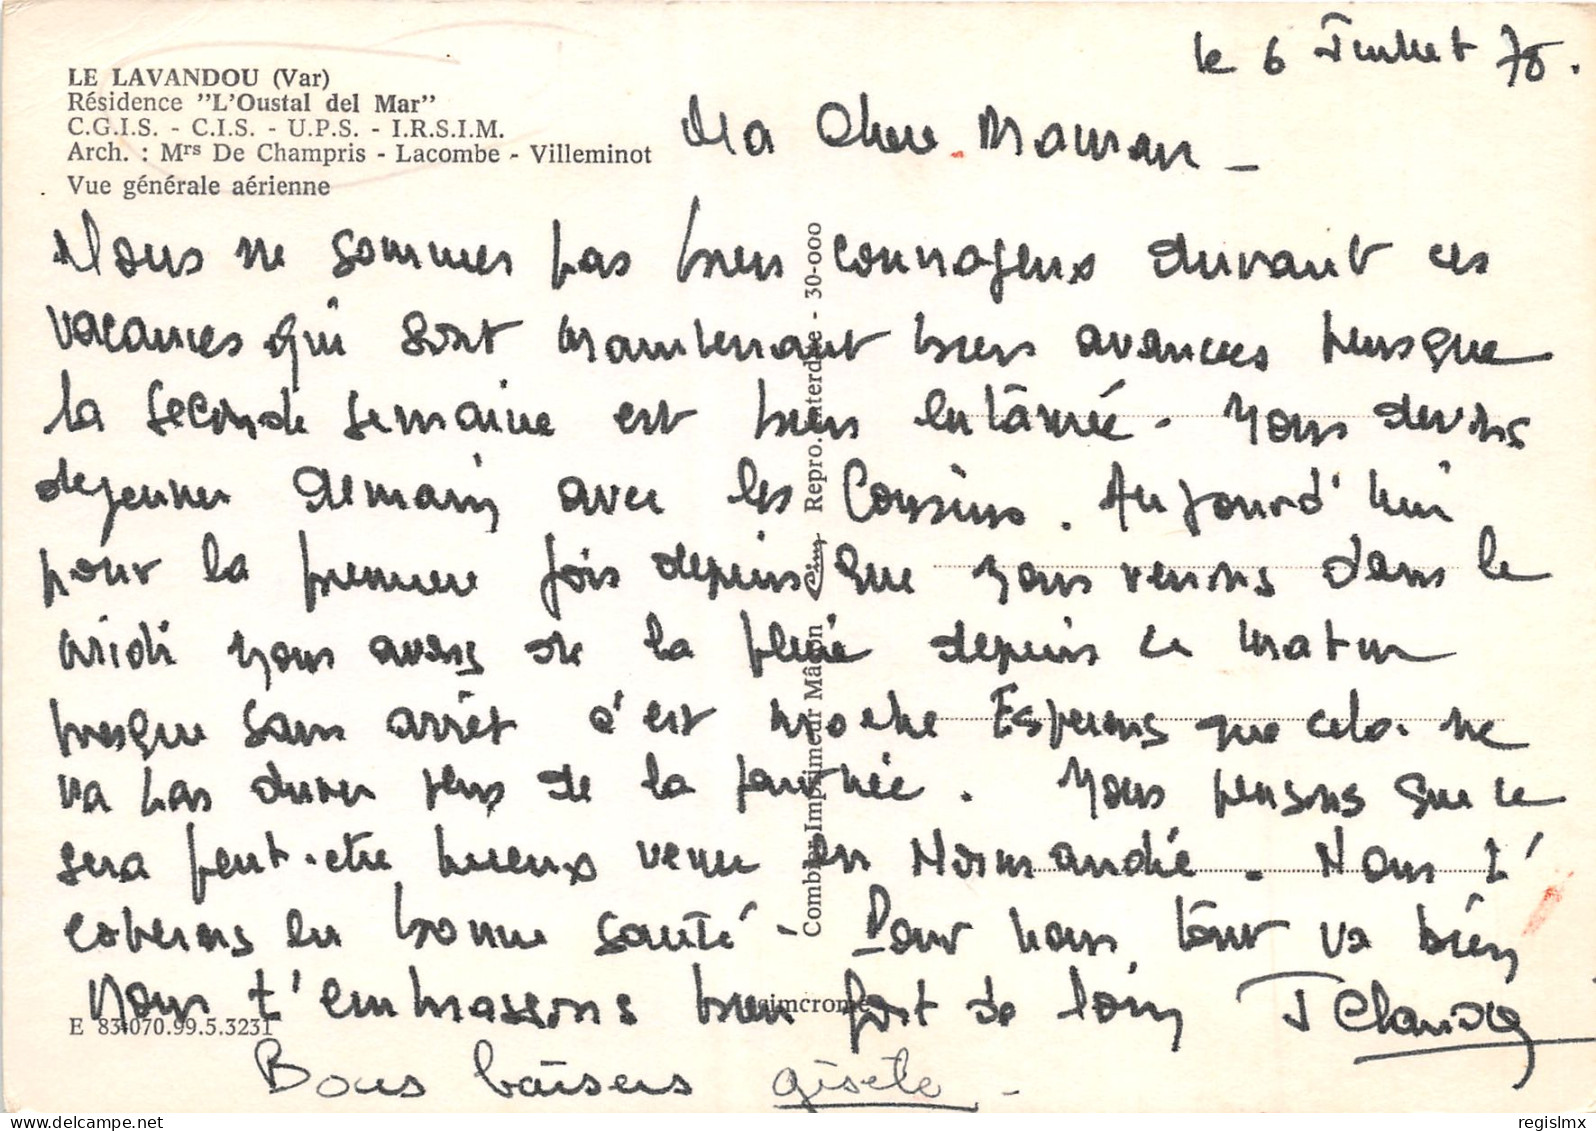 le 6 Juillet 78.
LE LAVANDOU (Var)
Résidence "L'Oustal del Mar"
C.G.I.S. - C.I.S. - U.P.S. - I.R.S.I.M.
Arch. : Mrs De Champris - Lacombe - Villeminot
Vue générale aérienne
Ma Chere Maman -
Nous ne sommes pas bien courrageux durant ces
vacances qui sont maintenant bien avancees puisque
la seconde semaine est bien entâmée. Nous devons
dejeuner demain avec les Cousins. Aujourd'hui
pour la premiere fois depuis que nous venons dans le
midi nous avons de la pluie depuis ce matin
presque sans arrêt c'est moche Esperons que cela ne
va pas durer plus de la journée. Nous pensons que ce
sera peut-etre mieux venu en Normandie. Nous t'
esperons en bonne santé - Pour nous tout va bien
Nous t'embrassons bien fort de loin J Claude
Bons baisers gisele -
Combier Imprimeur Mâcon Cim Repro. interdite - 30-000
cimcrome
E 83.070.99.5.3231
regislmx